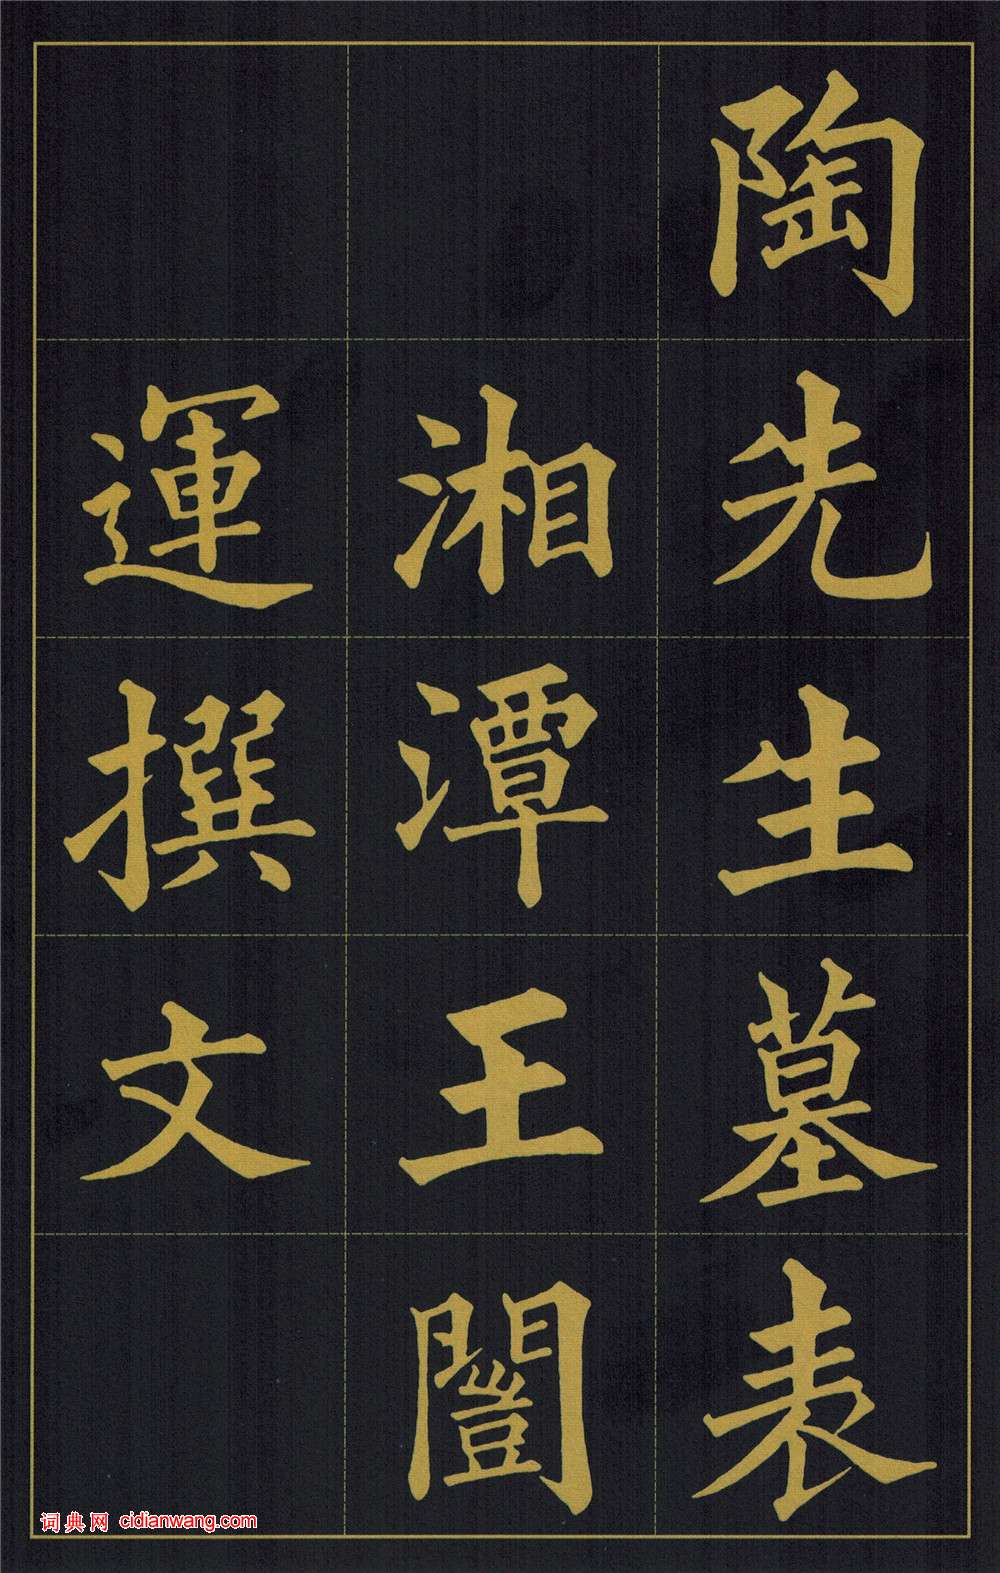 陶先生墓表
湘潭王闓
運撰文
词典网 cidianwang.com